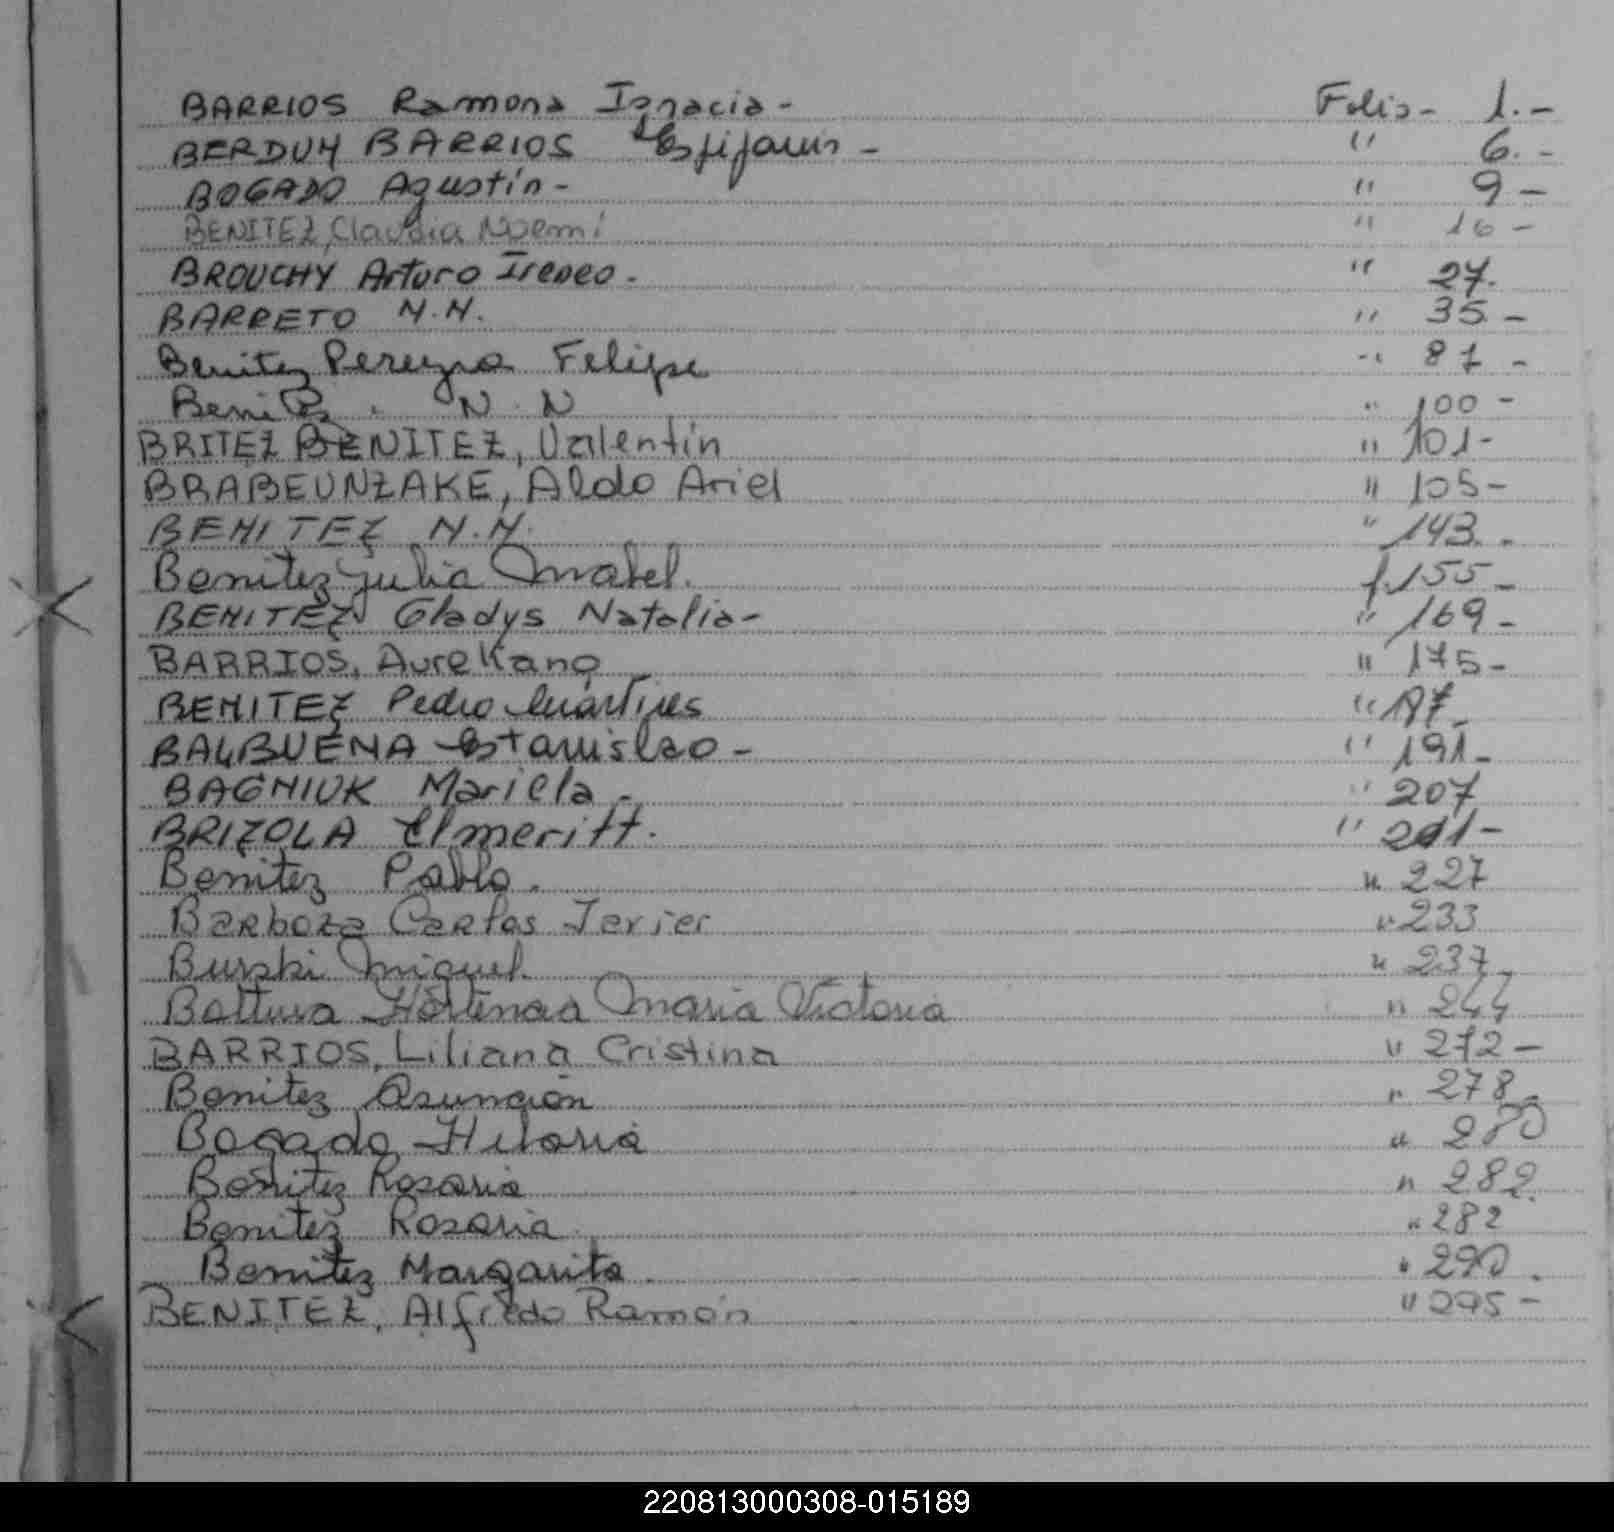 BARRIOS Ramona Ignacia - Folio - 1. -
BERDUN BARRIOS Epifanis - " 6. -
BOGADO Agustín - " 9 -
BENITEZ, Claudia Noemí " 16 -
BROUCHY Arturo Ireneo. " 27.
BARRETO N.N. " 35 -
Benitez Pereyra Felipe " 87 -
Benitez. N. N " 100 -
BRITEZ BENITEZ, Valentín " 101 -
BRABEUNZAKE, Aldo Ariel " 105 -
BENITEZ N.N. " 143. -
Benitez Julia Mabel. f. 155 -
BENITEZ Gladys Natalia - " 169 -
BARRIOS, " 175 -
BENITEZ Pedro "
BALBUENA Estanislao - " 191 -
BAGNIUK Mariela - " 207
BRIZOLA Elmeritt. " 211 -
Benitez Pablo. " 227
Barboza Carlos Javier " 233
Burski Miguel. " 237
Hortencia Maria Victoria " 244
BARRIOS, Liliana Cristina " 272 -
Benitez Asunción " 278 -
Bogado Hilaria " 280
Benitez Rosaria " 282.
Benitez Rosaria. " 282
Benitez Margarita. " 290.
BENITEZ, Alfredo Ramón " 295 -
220813000308-015189